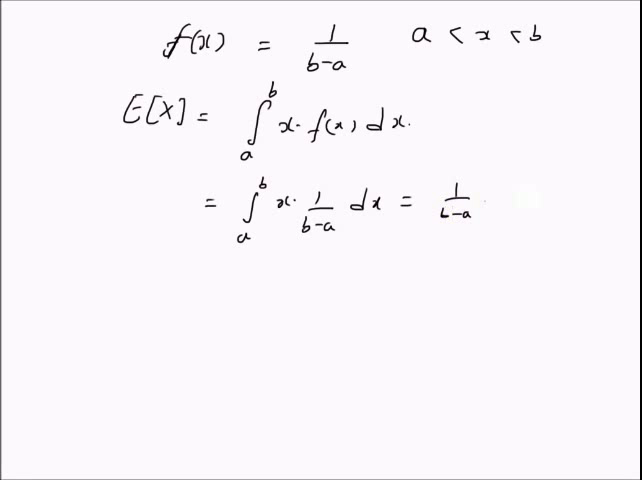 f(x) = 1/(b-a) a < x < b
E[X] = ∫_a^b x. f(x) dx.
= ∫_a^b x. 1/(b-a) dx = 1/(b-a)